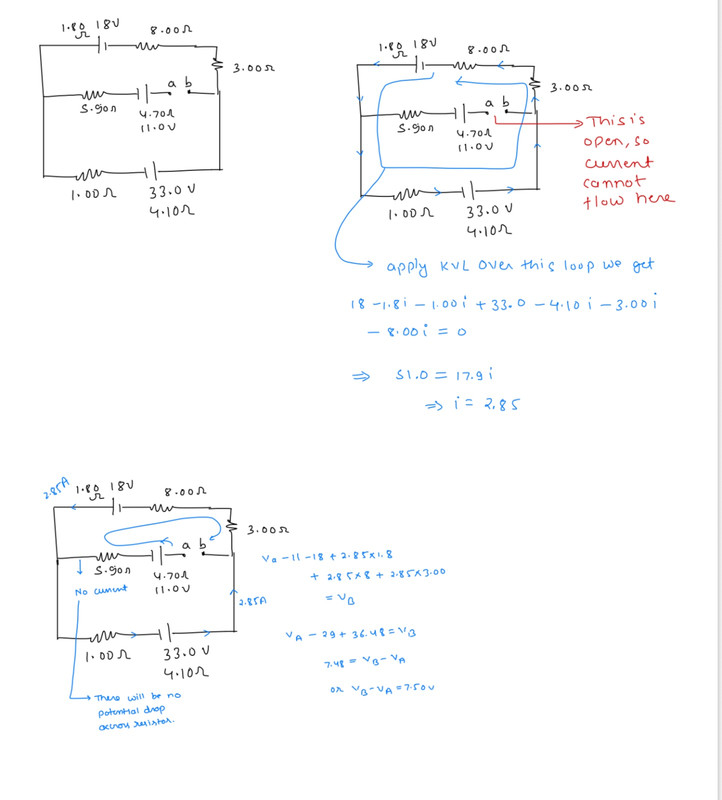 1.80 Ω 18V 8.00Ω
3.00Ω
a b
5.90Ω 4.70Ω
11.0V
1.00Ω 33.0 V
4.10Ω
1.80 Ω 18V 8.00Ω
3.00Ω
a b
5.90Ω 4.70Ω
11.0V
1.00Ω 33.0 V
4.10Ω
This is
open, so
current
cannot
flow here
apply KVL over this loop we get
18 - 1.8i - 1.00i + 33.0 - 4.10i - 3.00i
- 8.00i = 0
⇒ 51.0 = 17.9i
⇒ i = 2.85
2.85A
1.80 Ω 18V 8.00Ω
3.00Ω
a b
5.90Ω 4.70Ω
11.0V
No current
2.85A
1.00Ω 33.0 V
4.10Ω
There will be no
potential drop
across resistor.
Va - 11 - 18 + 2.85×1.8
+ 2.85×8 + 2.85×3.00
= VB
VA - 29 + 36.48 = VB
7.48 = VB - VA
or VB - VA = 7.50V